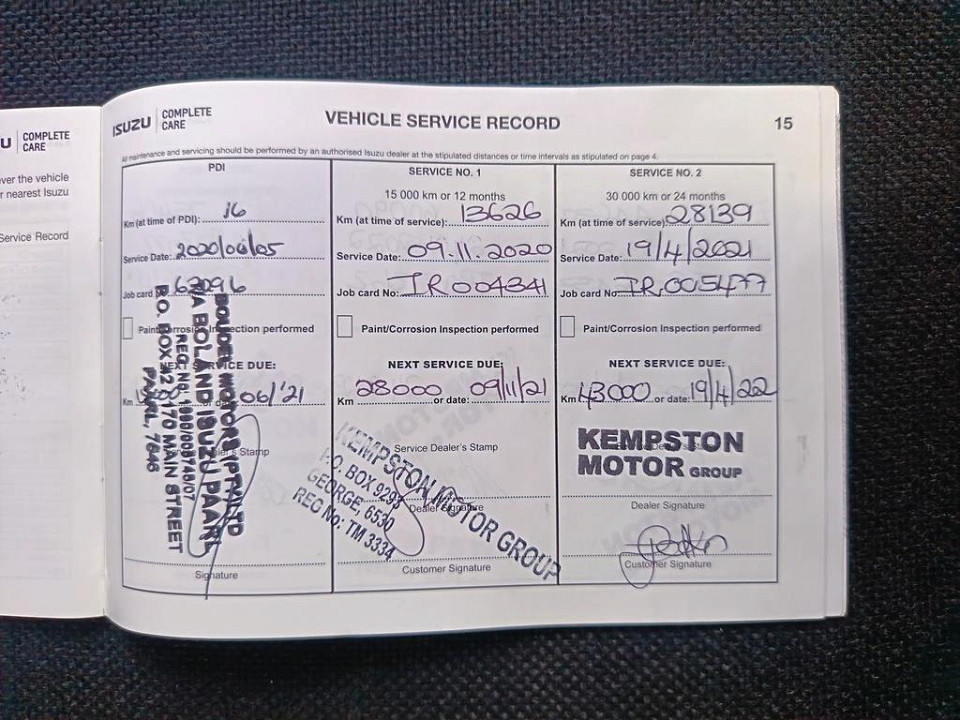 U | COMPLETE CARE
ver the vehicle
r nearest Isuzu
Service Record
ISUZU | COMPLETE CARE
VEHICLE SERVICE RECORD
15
All maintenance and servicing should be performed by an authorised Isuzu dealer at the stipulated distances or time intervals as stipulated on page 4.
PDI
Km (at time of PDI): 16
Service Date: 2020/06/05
Job card 62096
Paint/Corrosion Inspection performed
NEXT SERVICE DUE:
Km or date 06/'21
T/A BOLAND ISUZU PAARL
REG No.
P.O. BOX 170 MAIN STREET
PAARL, 7646
Signature
SERVICE NO. 1
15 000 km or 12 months
Km (at time of service): 13626
Service Date: 09.11.2020
Job card No: IR004341
Paint/Corrosion Inspection performed
NEXT SERVICE DUE:
Km 28000 or date: 09/11/21
Service Dealer's Stamp
KEMPSTON MOTOR GROUP
P.O. BOX 9293
GEORGE, 6530
REG No: TM 3334
Dealer Signature
Customer Signature
SERVICE NO. 2
30 000 km or 24 months
Km (at time of service): 28139
Service Date: 19/4/2021
Job card No: IR005477
Paint/Corrosion Inspection performed
NEXT SERVICE DUE:
Km 43000 or date: 19/4/22
KEMPSTON
MOTOR GROUP
Dealer Signature
Customer Signature